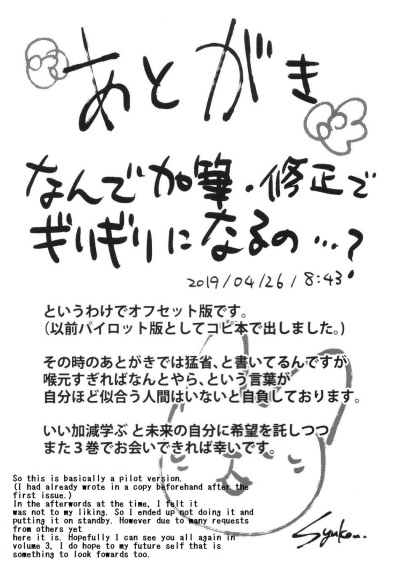 あとがき
なんで加筆・修正で
ぎりぎりになるの…?
2019/04/26/8:43
というわけでオフセット版です。
(以前パイロット版としてコピ本で出しました。)
その時のあとがきでは猛省、と書いてるんですが
喉元すぎればなんとやら、という言葉が
自分ほど似合う人間はいないと自負しております。
いい加減学ぶ と未来の自分に希望を託しつつ
また３巻でお会いできれば幸いです。
So this is basically a pilot version.
(I had already wrote in a copy beforehand after the
first issue.)
In the afterwords at the time, I felt it
was not to my liking. So I ended up not doing it and
putting it on standby. However due to many requests
from others yet
here it is. Hopefully I can see you all again in
volume 3, I do hope to my future self that is
something to look fowards too.
Syukou.